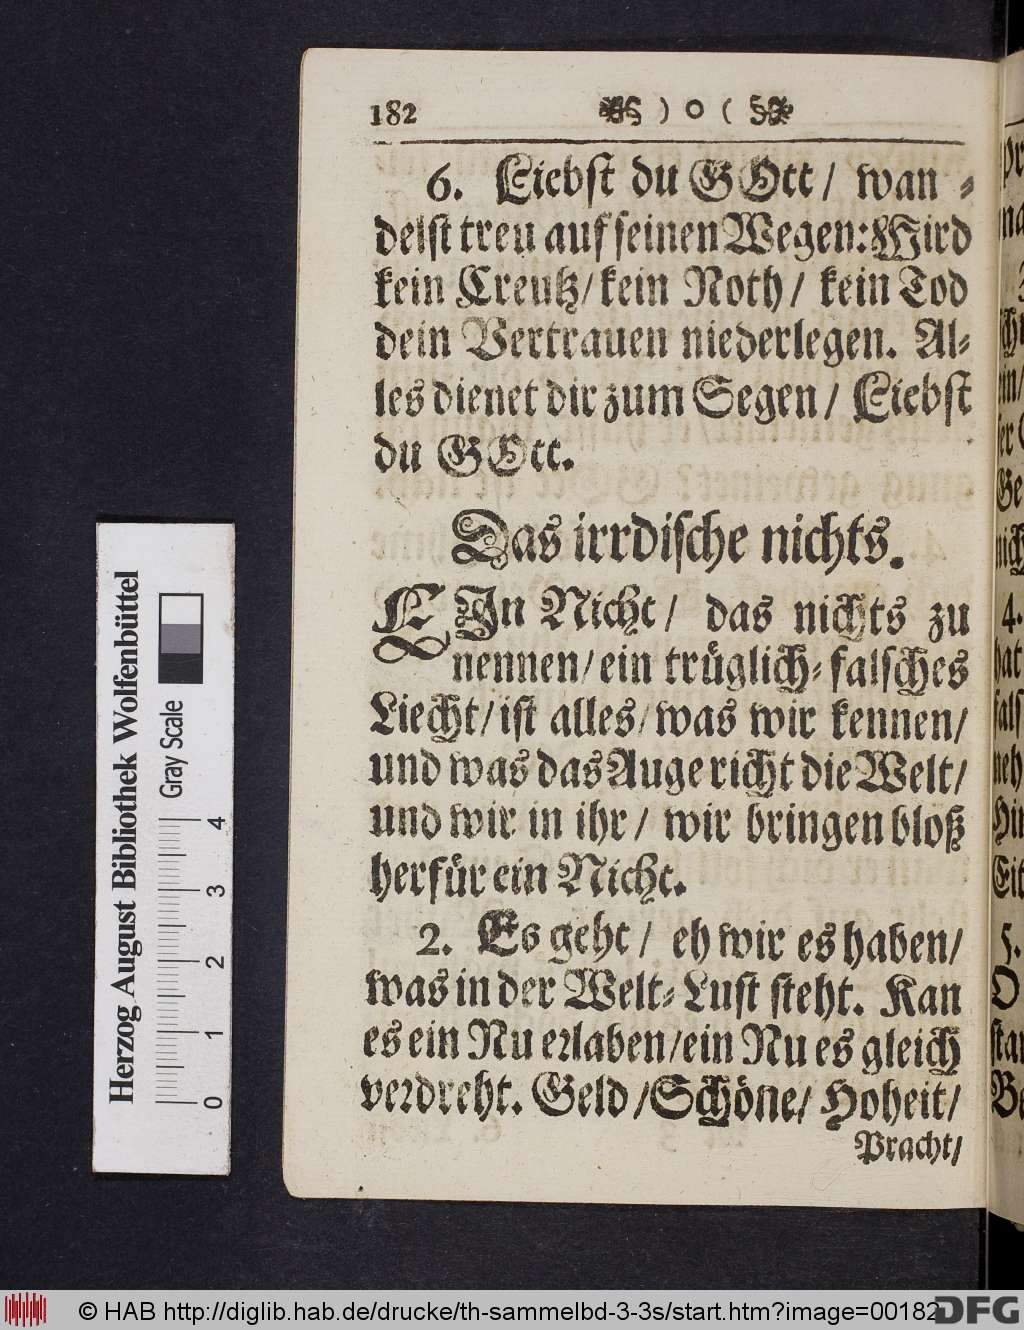 182 ) o (
6. Liebst du GOtt / wan-
delst treu auf seinen Wegen: Wird
kein Creutz / kein Noth / kein Tod
dein Vertrauen niederlegen. Al-
les dienet dir zum Segen / Liebst
du GOtt.
Das irrdische nichts.
EIn Nicht / das nichts zu
nennen / ein trüglich-falsches
Liecht / ist alles / was wir kennen /
und was das Auge richt die Welt /
und wir in ihr / wir bringen bloß
herfür ein Nicht.
2. Es geht / eh wir es haben /
was in der Welt-Lust steht. Kan
es ein Nu erlaben / ein Nu es gleich
verdreht. Geld / Schöne / Hoheit /
Pracht /
Herzog August Bibliothek Wolfenbüttel
Gray Scale
0 1 2 3 4
© HAB http://diglib.hab.de/drucke/th-sammelbd-3-3s/start.htm?image=00182
DFG